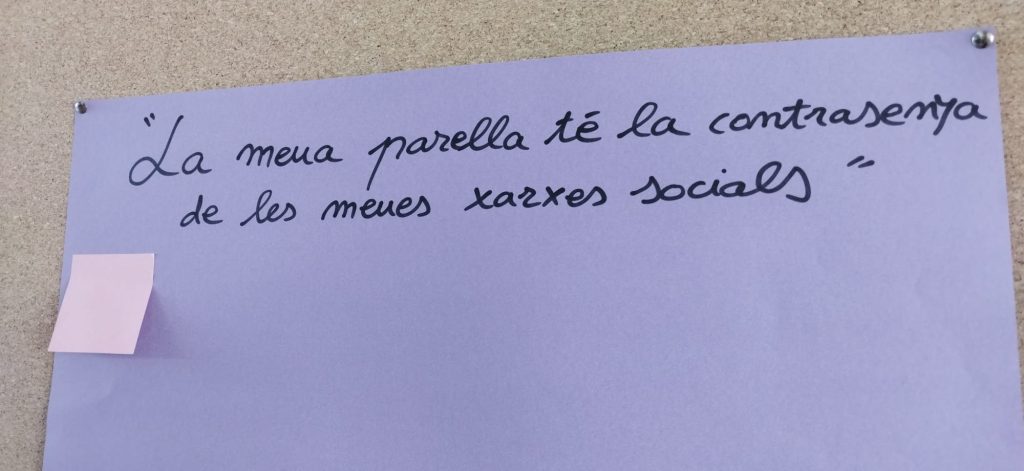 "La meua parella té la contrasenya
de les meues xarxes socials"